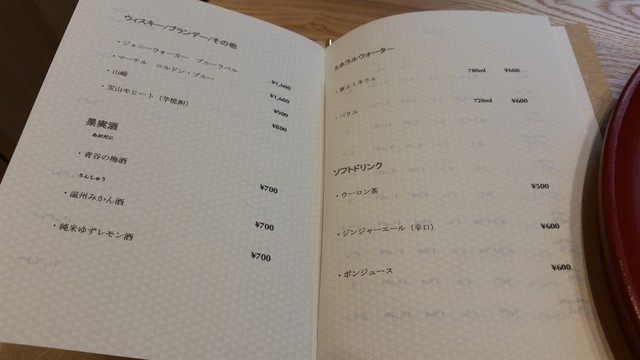 ウィスキー/ブランデー/その他
・ジョニーウォーカー ブルーラベル ¥1,600
・マーテル コルドン・ブルー ¥1,600
・山崎 ¥900
・宝山モヒート（芋焼酎） ¥800
果実酒
あおだに
・青谷の梅酒 ¥700
うんしゅう
・温州みかん酒 ¥700
・純米ゆずレモン酒 ¥700
ミネラルウォーター
780ml ¥600
・ペリエ 720ml ¥600
ソフトドリンク
・ウーロン茶 ¥500
・ジンジャーエール（辛口） ¥600
・ポンジュース ¥600